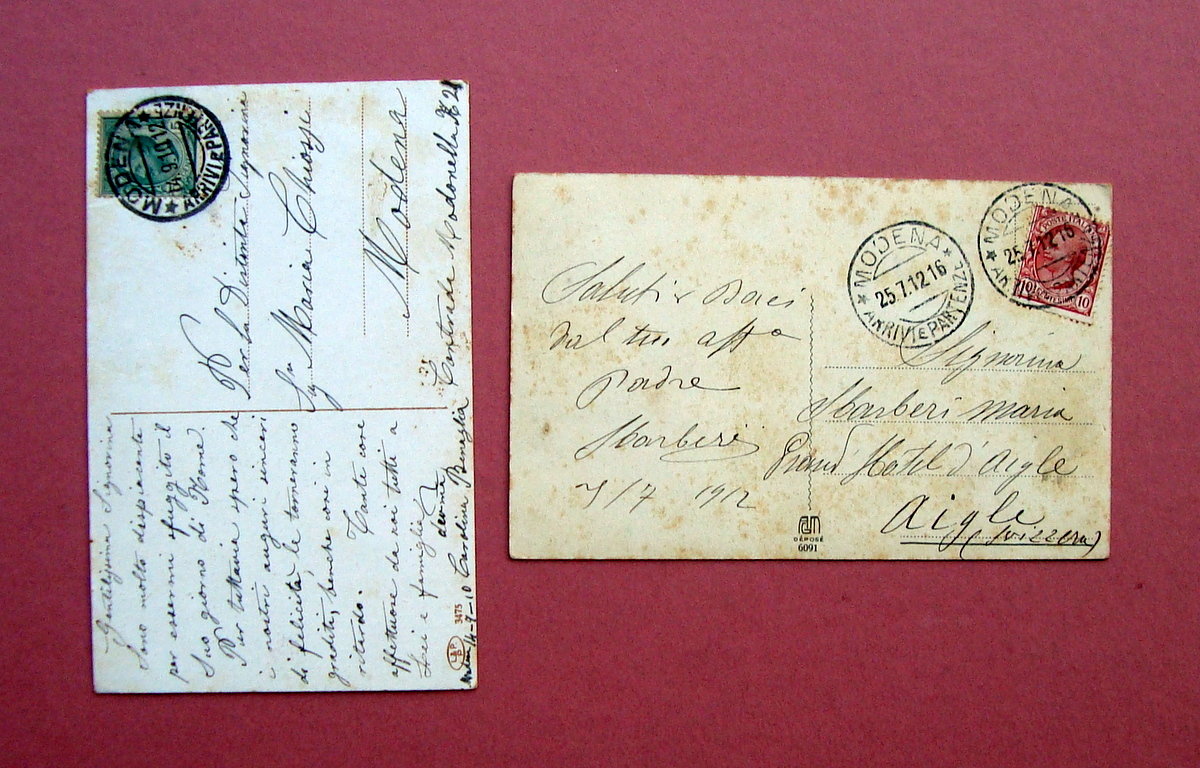 MODENA
14.9.10.12
ARRIVI E PARTENZE
Gentilissima Signorina
Sono molto dispiacente
per essermi sfuggito il
Suo giorno di Nome.
Pur tuttavia spero che
i nostri auguri sinceri
di felicità le torneranno
graditi, benchè così in
ritardo. Tante cose
affettuose da noi tutti a
Lei e famiglia
Carolina Beneglia
14-9-10
L&P
P
3475
Per la Distinta Signorina
Sig.na Maria Chiossi
Contrada N 21
Modena
Saluti e Baci
dal tuo affo
padre
Barberi
7/7 1912
DÉPOSÉ
6091
MODENA
25.7.12 16
ARRIVI E PARTENZE
MODENA
25.7.12 16
POSTE ITALIANE
10
Signorina
Barberi Maria
Grand Hotel d'Aigle
Aigle
(Svizzera)